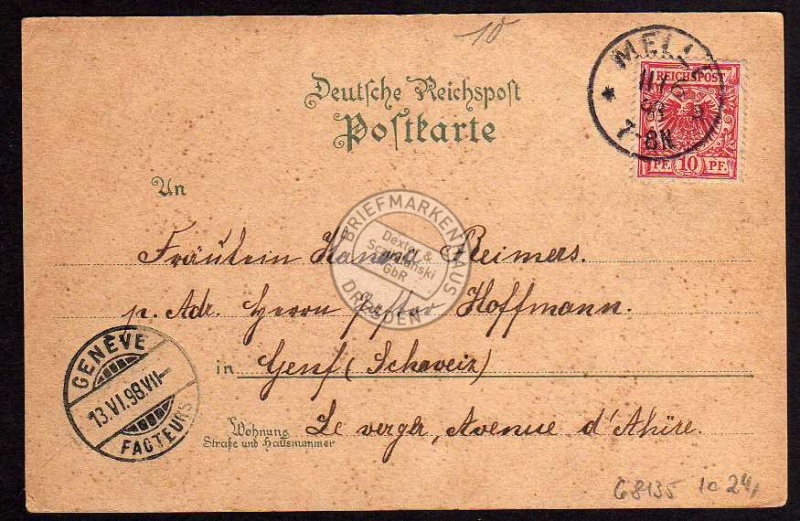 10
MELLE
11/6
98
7-8N
REICHSPOST
PF. 10 PF.
Deutsche Reichspost
Postkarte
An
Fräulein Hanna Reimers.
p. Adr. Herrn Pastor Hoffmann.
in Genf (Schweiz)
Le verger, Avenue d'Ahïre.
Wohnung
Straße und Hausnummer
GENÈVE
13.VI.98.VII-
FACTEURS
BRIEFMARKENHAUS
Dexler &
GbR
DRESDEN
G8135 10 24,